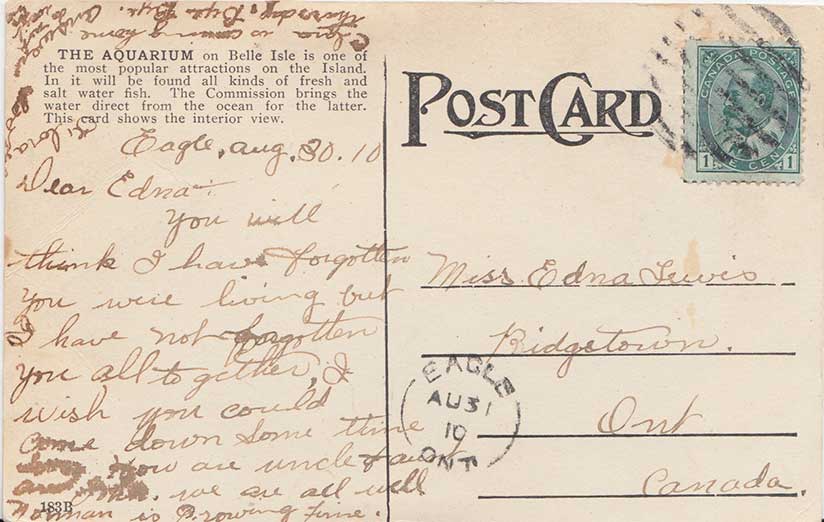 THE AQUARIUM on Belle Isle is one of
the most popular attractions on the Island.
In it will be found all kinds of fresh and
salt water fish. The Commission brings the
water direct from the ocean for the latter.
This card shows the interior view.
POST CARD
CANADA POSTAGE
1 ONE CENT 1
Eagle, Aug. 30. 10
Dear Edna
You will
think I have forgotten
you were living but
I have not forgotten
you all to gether, I
wish you could
come down some time
how are uncle & aunt
we are all well
Norman is growing fine.
Clora is coming home
Thursday. Bye Bye.
Miss Edna Lewis
Ridgetown.
Ont
Canada.
EAGLE
AU 31
10
ONT
183B